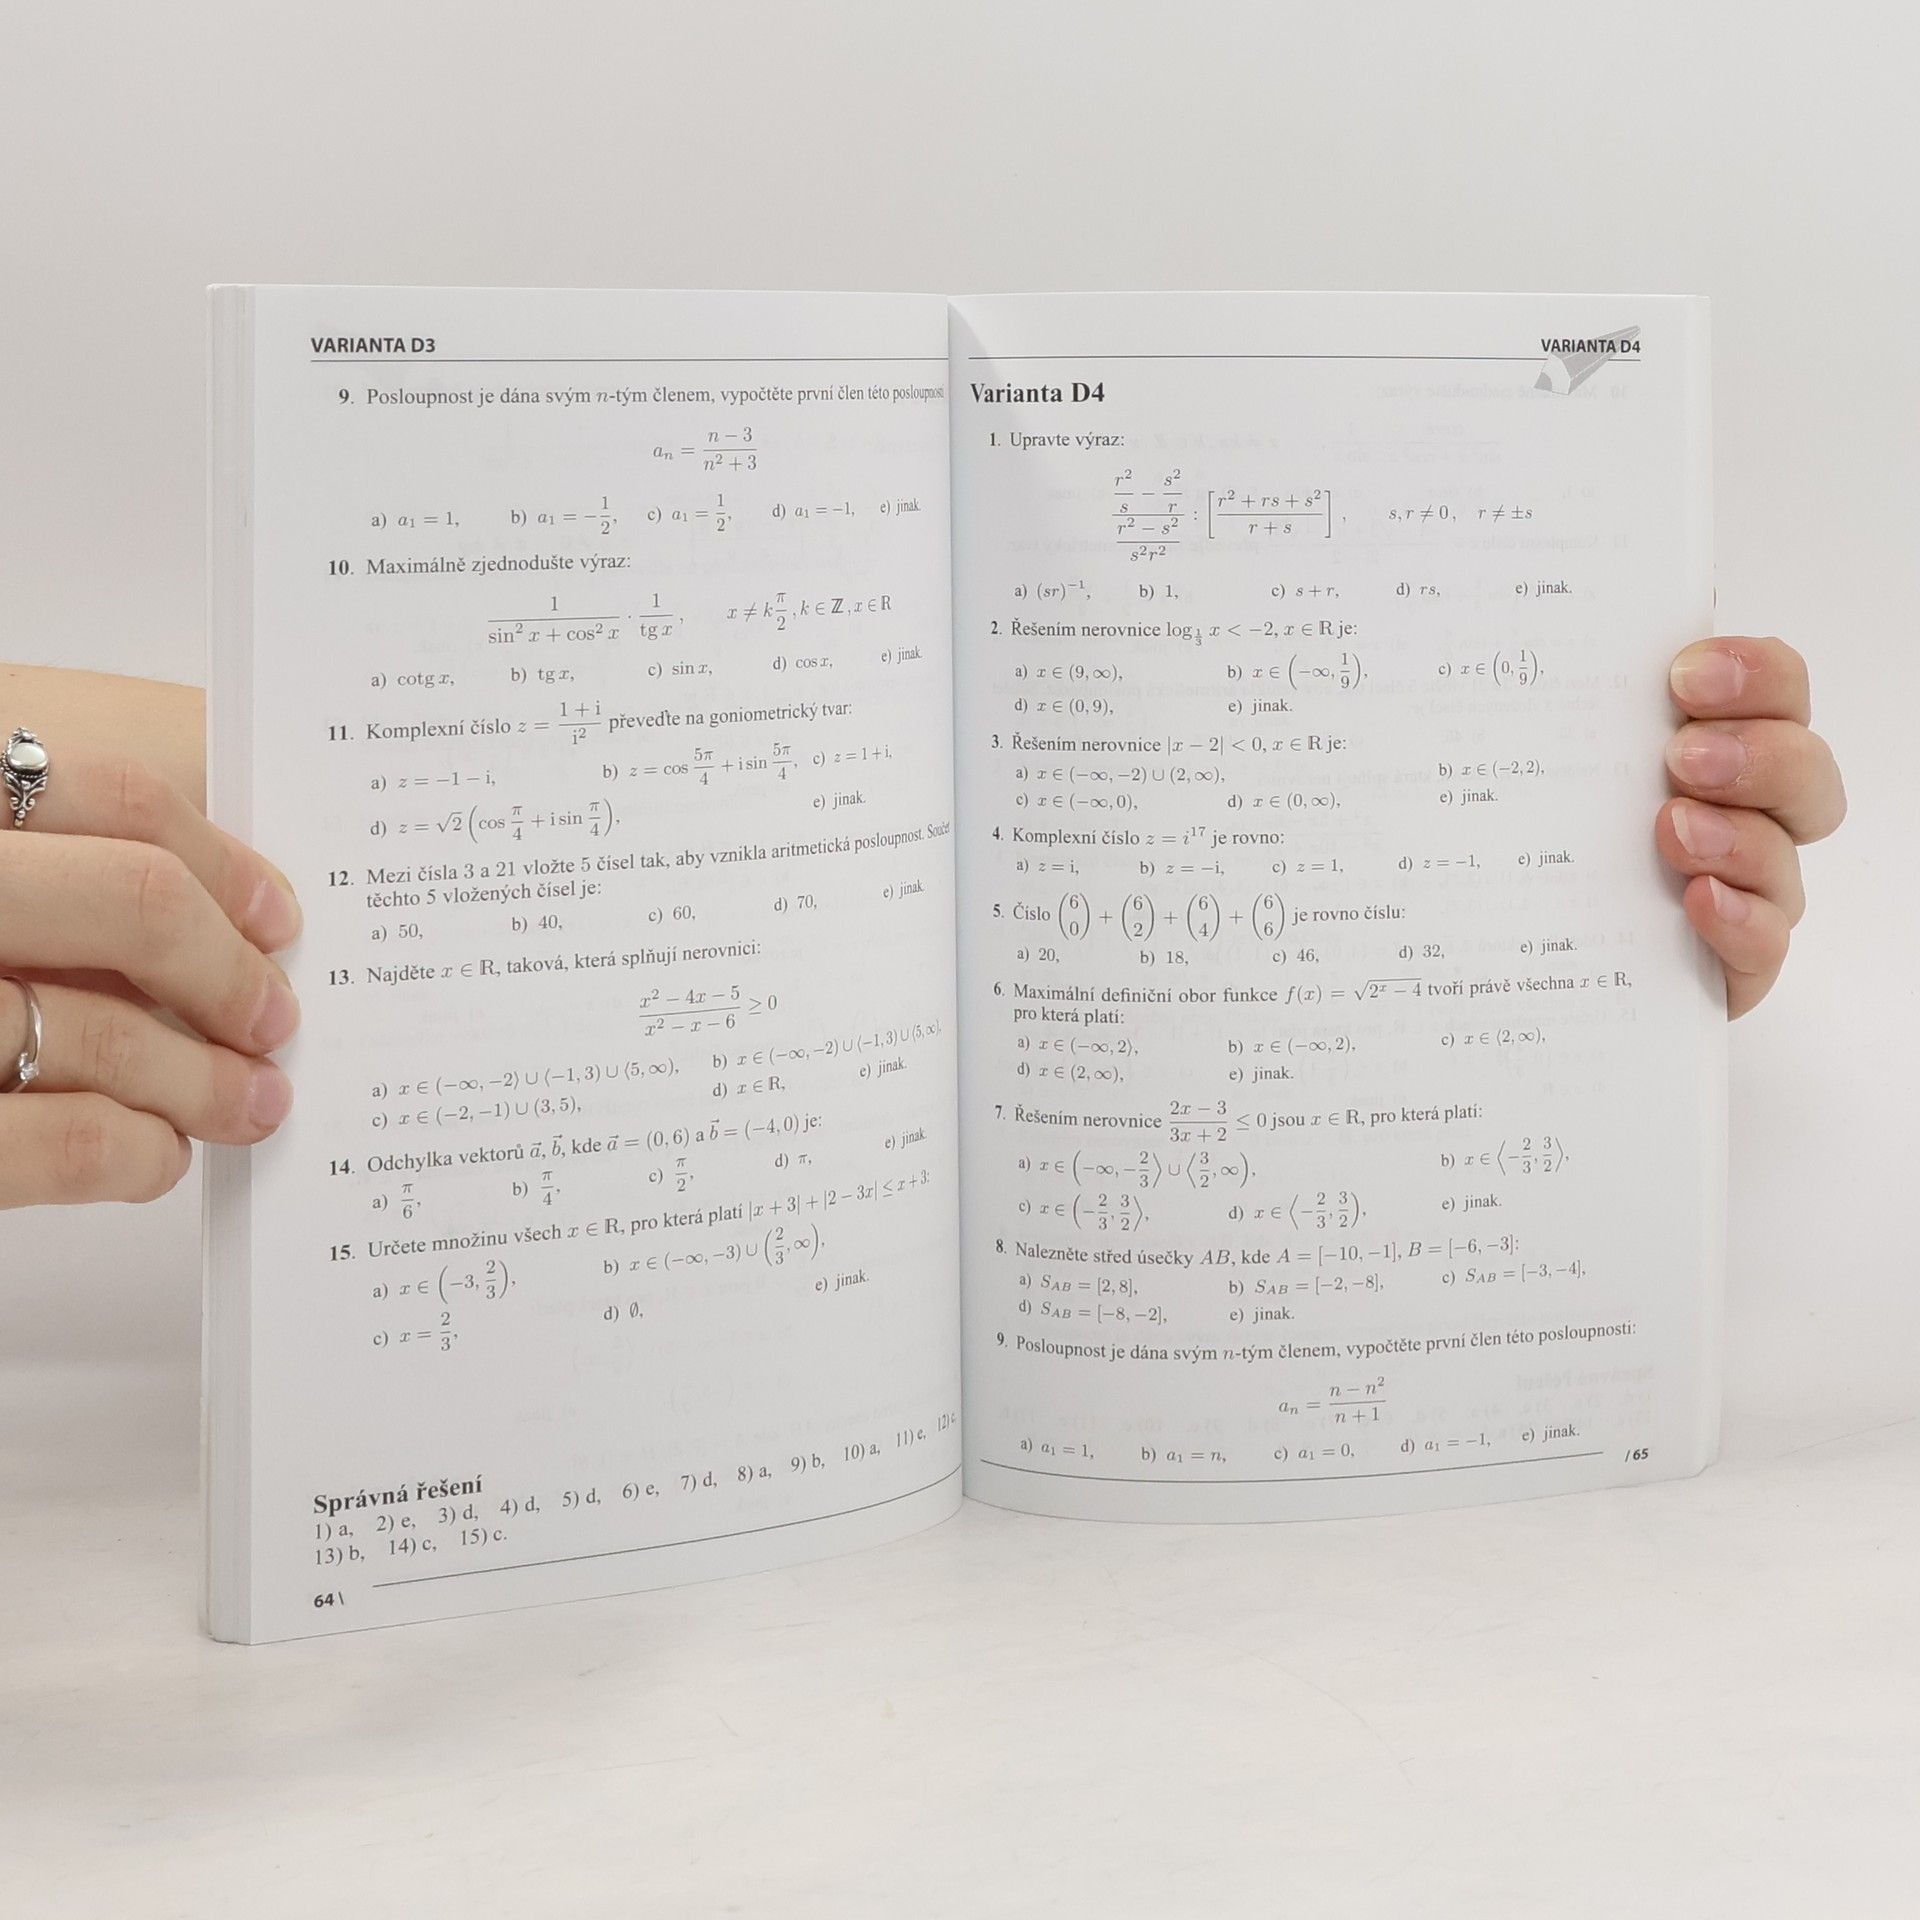 VARIANTA D3
9. Posloupnost je dána svým n-tým členem, vypočtěte první člen této posloupnosti
a_n = \frac{n - 3}{n^2 + 3}
a) a_1 = 1, b) a_1 = -\frac{1}{2}, c) a_1 = \frac{1}{2}, d) a_1 = -1, e) jinak.
10. Maximálně zjednodušte výraz:
\frac{1}{\sin^2 x + \cos^2 x} \cdot \frac{1}{tg x}, x ≠ k\frac{π}{2}, k ∈ ℤ, x ∈ ℝ
a) cotg x, b) tg x, c) sin x, d) cos x, e) jinak.
11. Komplexní číslo z = \frac{1 + i}{i^2} převeďte na goniometrický tvar:
a) z = -1 - i, b) z = cos \frac{5π}{4} + i sin \frac{5π}{4}, c) z = 1 + i,
d) z = √2 (cos \frac{π}{4} + i sin \frac{π}{4}), e) jinak.
12. Mezi čísla 3 a 21 vložte 5 čísel tak, aby vznikla aritmetická posloupnost. Součet
těchto 5 vložených čísel je:
a) 50, b) 40, c) 60, d) 70, e) jinak.
13. Najděte x ∈ ℝ, taková, která splňují nerovnici:
\frac{x^2 - 4x - 5}{x^2 - x - 6} ≥ 0
a) x ∈ (-∞, -2⟩ ∪ ⟨-1, 3) ∪ ⟨5, ∞), b) x ∈ (-∞, -2) ∪ ⟨-1, 3) ∪ ⟨5, ∞),
c) x ∈ (-2, -1) ∪ (3, 5), d) x ∈ ℝ, e) jinak.
14. Odchylka vektorů \vec{a}, \vec{b}, kde \vec{a} = (0, 6) a \vec{b} = (-4, 0) je:
a) \frac{π}{6}, b) \frac{π}{4}, c) \frac{π}{2}, d) π, e) jinak.
15. Určete množinu všech x ∈ ℝ, pro která platí |x + 3| + |2 - 3x| ≤ x + 3:
a) x ∈ (-3, \frac{2}{3}), b) x ∈ (-∞, -3) ∪ (\frac{2}{3}, ∞),
c) x = \frac{2}{3}, d) ∅, e) jinak.
Správná řešení
1) a, 2) e, 3) d, 4) d, 5) d, 6) e, 7) d, 8) a, 9) b, 10) a, 11) e, 12) c
13) b, 14) c, 15) c.
64 \
VARIANTA D4
Varianta D4
1. Upravte výraz:
\frac{\frac{r^2}{s} - \frac{s^2}{r}}{\frac{r^2 - s^2}{s^2 r^2}} : [\frac{r^2 + rs + s^2}{r + s}], s, r ≠ 0, r ≠ ±s
a) (sr)^{-1}, b) 1, c) s + r, d) rs, e) jinak.
2. Řešením nerovnice log_{\frac{1}{3}} x < -2, x ∈ ℝ je:
a) x ∈ (9, ∞), b) x ∈ (-∞, \frac{1}{9}), c) x ∈ (0, \frac{1}{9}),
d) x ∈ (0, 9), e) jinak.
3. Řešením nerovnice |x - 2| < 0, x ∈ ℝ je:
a) x ∈ (-∞, -2) ∪ (2, ∞), b) x ∈ (-2, 2),
c) x ∈ (-∞, 0), d) x ∈ (0, ∞), e) jinak.
4. Komplexní číslo z = i^{17} je rovno:
a) z = i, b) z = -i, c) z = 1, d) z = -1, e) jinak.
5. Číslo \binom{6}{0} + \binom{6}{2} + \binom{6}{4} + \binom{6}{6} je rovno číslu:
a) 20, b) 18, c) 46, d) 32, e) jinak.
6. Maximální definiční obor funkce f(x) = \sqrt{2^x - 4} tvoří právě všechna x ∈ ℝ,
pro která platí:
a) x ∈ (-∞, 2⟩, b) x ∈ (-∞, 2), c) x ∈ ⟨2, ∞),
d) x ∈ (2, ∞), e) jinak.
7. Řešením nerovnice \frac{2x - 3}{3x + 2} ≤ 0 jsou x ∈ ℝ, pro která platí:
a) x ∈ (-∞, -\frac{2}{3}⟩ ∪ ⟨\frac{3}{2}, ∞), b) x ∈ ⟨-\frac{2}{3}, \frac{3}{2}⟩,
c) x ∈ (-\frac{2}{3}, \frac{3}{2}⟩, d) x ∈ ⟨-\frac{2}{3}, \frac{3}{2}), e) jinak.
8. Nalezněte střed úsečky AB, kde A = [-10, -1], B = [-6, -3]:
a) S_{AB} = [2, 8], b) S_{AB} = [-2, -8], c) S_{AB} = [-3, -4],
d) S_{AB} = [-8, -2], e) jinak.
9. Posloupnost je dána svým n-tým členem, vypočtěte první člen této posloupnosti:
a_n = \frac{n - n^2}{n + 1}
a) a_1 = 1, b) a_1 = n, c) a_1 = 0, d) a_1 = -1, e) jinak.
/ 65